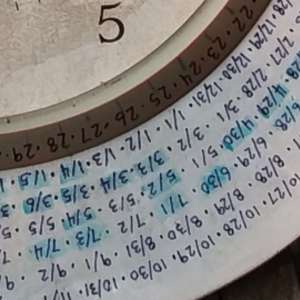 5
22 · 23 · 24 · 25 · 26 · 27 · 28 · 29
12/29 · 12/30 · 12/31 · 1/1 · 1/2 · 1/3 · 1/4 · 1/5
2/27 · 2/28 · 3/1 · 3/2 · 3/3 · 3/4 · 3/5 · 3/6
4/28 · 4/29 · 4/30 · 5/1 · 5/2 · 5/3 · 5/4 · 5/5
6/28 · 6/29 · 6/30 · 7/1 · 7/2 · 7/3 · 7/4
8/28 · 8/29 · 8/30 · 8/31 · 9/1 · 9/2
10/27 · 10/28 · 10/29 · 10/30 · 10/31